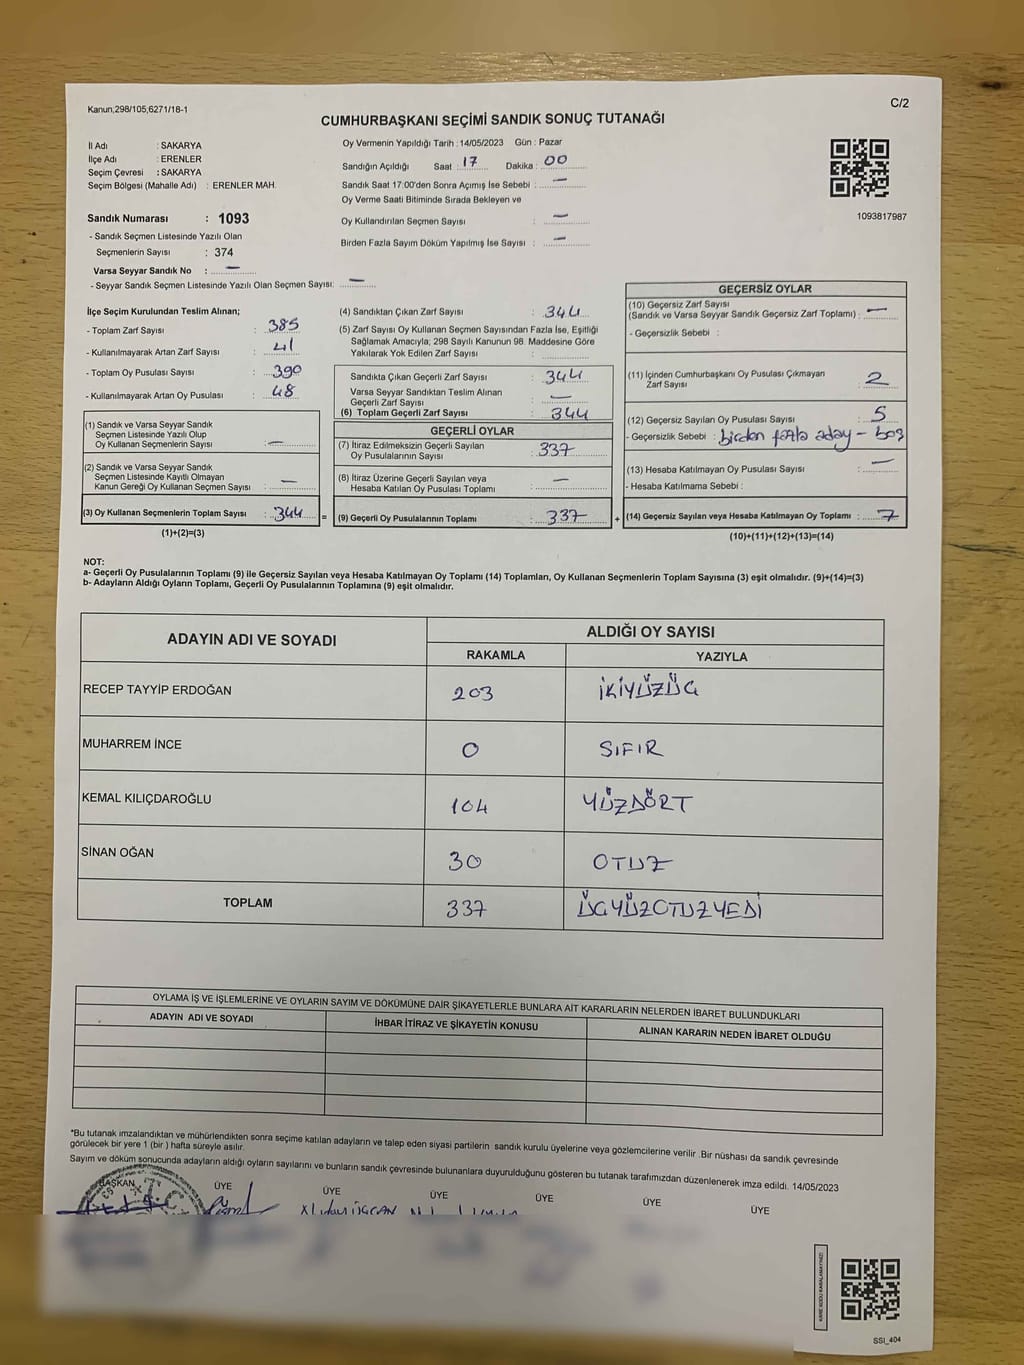 Kanun,298/105,6271/18-1
C/2
CUMHURBAŞKANI SEÇİMİ SANDIK SONUÇ TUTANAĞI
İl Adı : SAKARYA
İlçe Adı : ERENLER
Seçim Çevresi : SAKARYA
Seçim Bölgesi (Mahalle Adı) : ERENLER MAH.
Sandık Numarası : 1093
- Sandık Seçmen Listesinde Yazılı Olan
Seçmenlerin Sayısı : 374
Varsa Seyyar Sandık No : —
- Seyyar Sandık Seçmen Listesinde Yazılı Olan Seçmen Sayısı: —
Oy Vermenin Yapıldığı Tarih : 14/05/2023 Gün : Pazar
Sandığın Açıldığı Saat : 17 Dakika : 00
Sandık Saat 17:00'den Sonra Açımış İse Sebebi : —
Oy Verme Saati Bitiminde Sırada Bekleyen ve
Oy Kullandırılan Seçmen Sayısı : —
Birden Fazla Sayım Döküm Yapılmış İse Sayısı : —
1093817987
İlçe Seçim Kurulundan Teslim Alınan;
- Toplam Zarf Sayısı : 385
- Kullanılmayarak Artan Zarf Sayısı : 41
- Toplam Oy Pusulası Sayısı : 390
- Kullanılmayarak Artan Oy Pusulası : 48
(1) Sandık ve Varsa Seyyar Sandık
Seçmen Listesinde Yazılı Olup
Oy Kullanan Seçmenlerin Sayısı : —
(2) Sandık ve Varsa Seyyar Sandık
Seçmen Listesinde Kayıtlı Olmayan
Kanun Gereği Oy Kullanan Seçmen Sayısı : —
(3) Oy Kullanan Seçmenlerin Toplam Sayısı : 344 =
(1)+(2)=(3)
(4) Sandıktan Çıkan Zarf Sayısı : 344
(5) Zarf Sayısı Oy Kullanan Seçmen Sayısından Fazla İse, Eşitliği
Sağlamak Amacıyla; 298 Sayılı Kanunun 98. Maddesine Göre
Yakılarak Yok Edilen Zarf Sayısı :
Sandıkta Çıkan Geçerli Zarf Sayısı : 344
Varsa Seyyar Sandıktan Teslim Alınan
Geçerli Zarf Sayısı : —
(6) Toplam Geçerli Zarf Sayısı : 344
GEÇERLİ OYLAR
(7) İtiraz Edilmeksizin Geçerli Sayılan
Oy Pusulalarının Sayısı : 337
(8) İtiraz Üzerine Geçerli Sayılan veya
Hesaba Katılan Oy Pusulası Toplamı : —
(9) Geçerli Oy Pusulalarının Toplamı : 337 +
GEÇERSİZ OYLAR
(10) Geçersiz Zarf Sayısı
(Sandık ve Varsa Seyyar Sandık Geçersiz Zarf Toplamı) : —
- Geçersizlik Sebebi :
(11) İçinden Cumhurbaşkanı Oy Pusulası Çıkmayan
Zarf Sayısı : 2
(12) Geçersiz Sayılan Oy Pusulası Sayısı : 5
- Geçersizlik Sebebi : birden fazla aday - boş
(13) Hesaba Katılmayan Oy Pusulası Sayısı : —
- Hesaba Katılmama Sebebi :
(14) Geçersiz Sayılan veya Hesaba Katılmayan Oy Toplamı : 7
(10)+(11)+(12)+(13)=(14)
NOT:
a- Geçerli Oy Pusulalarının Toplamı (9) ile Geçersiz Sayılan veya Hesaba Katılmayan Oy Toplamı (14) Toplamları, Oy Kullanan Seçmenlerin Toplam Sayısına (3) eşit olmalıdır. (9)+(14)=(3)
b- Adayların Aldığı Oyların Toplamı, Geçerli Oy Pusulalarının Toplamına (9) eşit olmalıdır.
ADAYIN ADI VE SOYADI
ALDIĞI OY SAYISI
RAKAMLA YAZIYLA
RECEP TAYYİP ERDOĞAN 203 İKİYÜZÜÇ
MUHARREM İNCE 0 SIFIR
KEMAL KILIÇDAROĞLU 104 YÜZDÖRT
SİNAN OĞAN 30 OTUZ
TOPLAM 337 ÜÇYÜZOTUZYEDİ
OYLAMA İŞ VE İŞLEMLERİNE VE OYLARIN SAYIM VE DÖKÜMÜNE DAİR ŞİKAYETLERLE BUNLARA AİT KARARLARIN NELERDEN İBARET BULUNDUKLARI
ADAYIN ADI VE SOYADI İHBAR İTİRAZ VE ŞİKAYETİN KONUSU ALINAN KARARIN NEDEN İBARET OLDUĞU
*Bu tutanak imzalandıktan ve mühürlendikten sonra seçime katılan adayların ve talep eden siyasi partilerin sandık kurulu üyelerine veya gözlemcilerine verilir .Bir nüshası da sandık çevresinde
görülecek bir yere 1 (bir ) hafta süreyle asılır.
Sayım ve döküm sonucunda adayların aldığı oyların sayılarını ve bunların sandık çevresinde bulunanlara duyurulduğunu gösteren bu tutanak tarafımızdan düzenlenerek imza edildi. 14/05/2023
BAŞKAN ÜYE ÜYE ÜYE ÜYE ÜYE ÜYE
KARE KODU KARALAMAYINIZ!
SSI_404